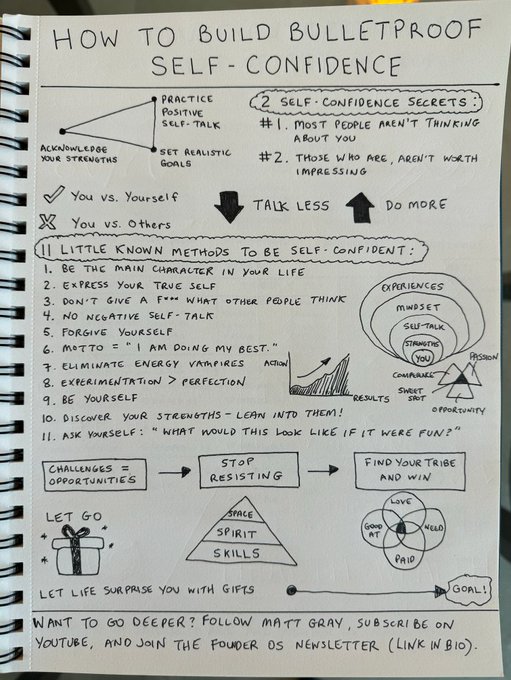 HOW TO BUILD BULLETPROOF
SELF-CONFIDENCE
PRACTICE
POSITIVE
SELF-TALK
ACKNOWLEDGE
YOUR STRENGTHS
SET REALISTIC
GOALS
2 SELF-CONFIDENCE SECRETS:
#1. MOST PEOPLE AREN'T THINKING
ABOUT YOU
#2. THOSE WHO ARE, AREN'T WORTH
IMPRESSING
You vs. Yourself
You vs. Others
TALK LESS
DO MORE
11 LITTLE KNOWN METHODS TO BE SELF-CONFIDENT:
1. BE THE MAIN CHARACTER IN YOUR LIFE
2. EXPRESS YOUR TRUE SELF
3. DON'T GIVE A F*** WHAT OTHER PEOPLE THINK
4. NO NEGATIVE SELF-TALK
5. FORGIVE YOURSELF
6. MOTTO = "I AM DOING MY BEST."
7. ELIMINATE ENERGY VAMPIRES
8. EXPERIMENTATION > PERFECTION
9. BE YOURSELF
10. DISCOVER YOUR STRENGTHS - LEAN INTO THEM!
11. ASK YOURSELF: "WHAT WOULD THIS LOOK LIKE IF IT WERE FUN?"
ACTION
RESULTS
EXPERIENCES
MINDSET
SELF-TALK
STRENGTHS
YOU
PASSION
SWEET
SPOT
OPPORTUNITY
CHALLENGES =
OPPORTUNITIES
STOP
RESISTING
FIND YOUR TRIBE
AND WIN
LET GO
SPACE
SPIRIT
SKILLS
LOVE
GOOD
AT
NEED
PAID
LET LIFE SURPRISE YOU WITH GIFTS
GOAL!
WANT TO GO DEEPER? FOLLOW MATT GRAY, SUBSCRIBE ON
YOUTUBE, AND JOIN THE FOUNDER OS NEWSLETTER (LINK IN BIO).